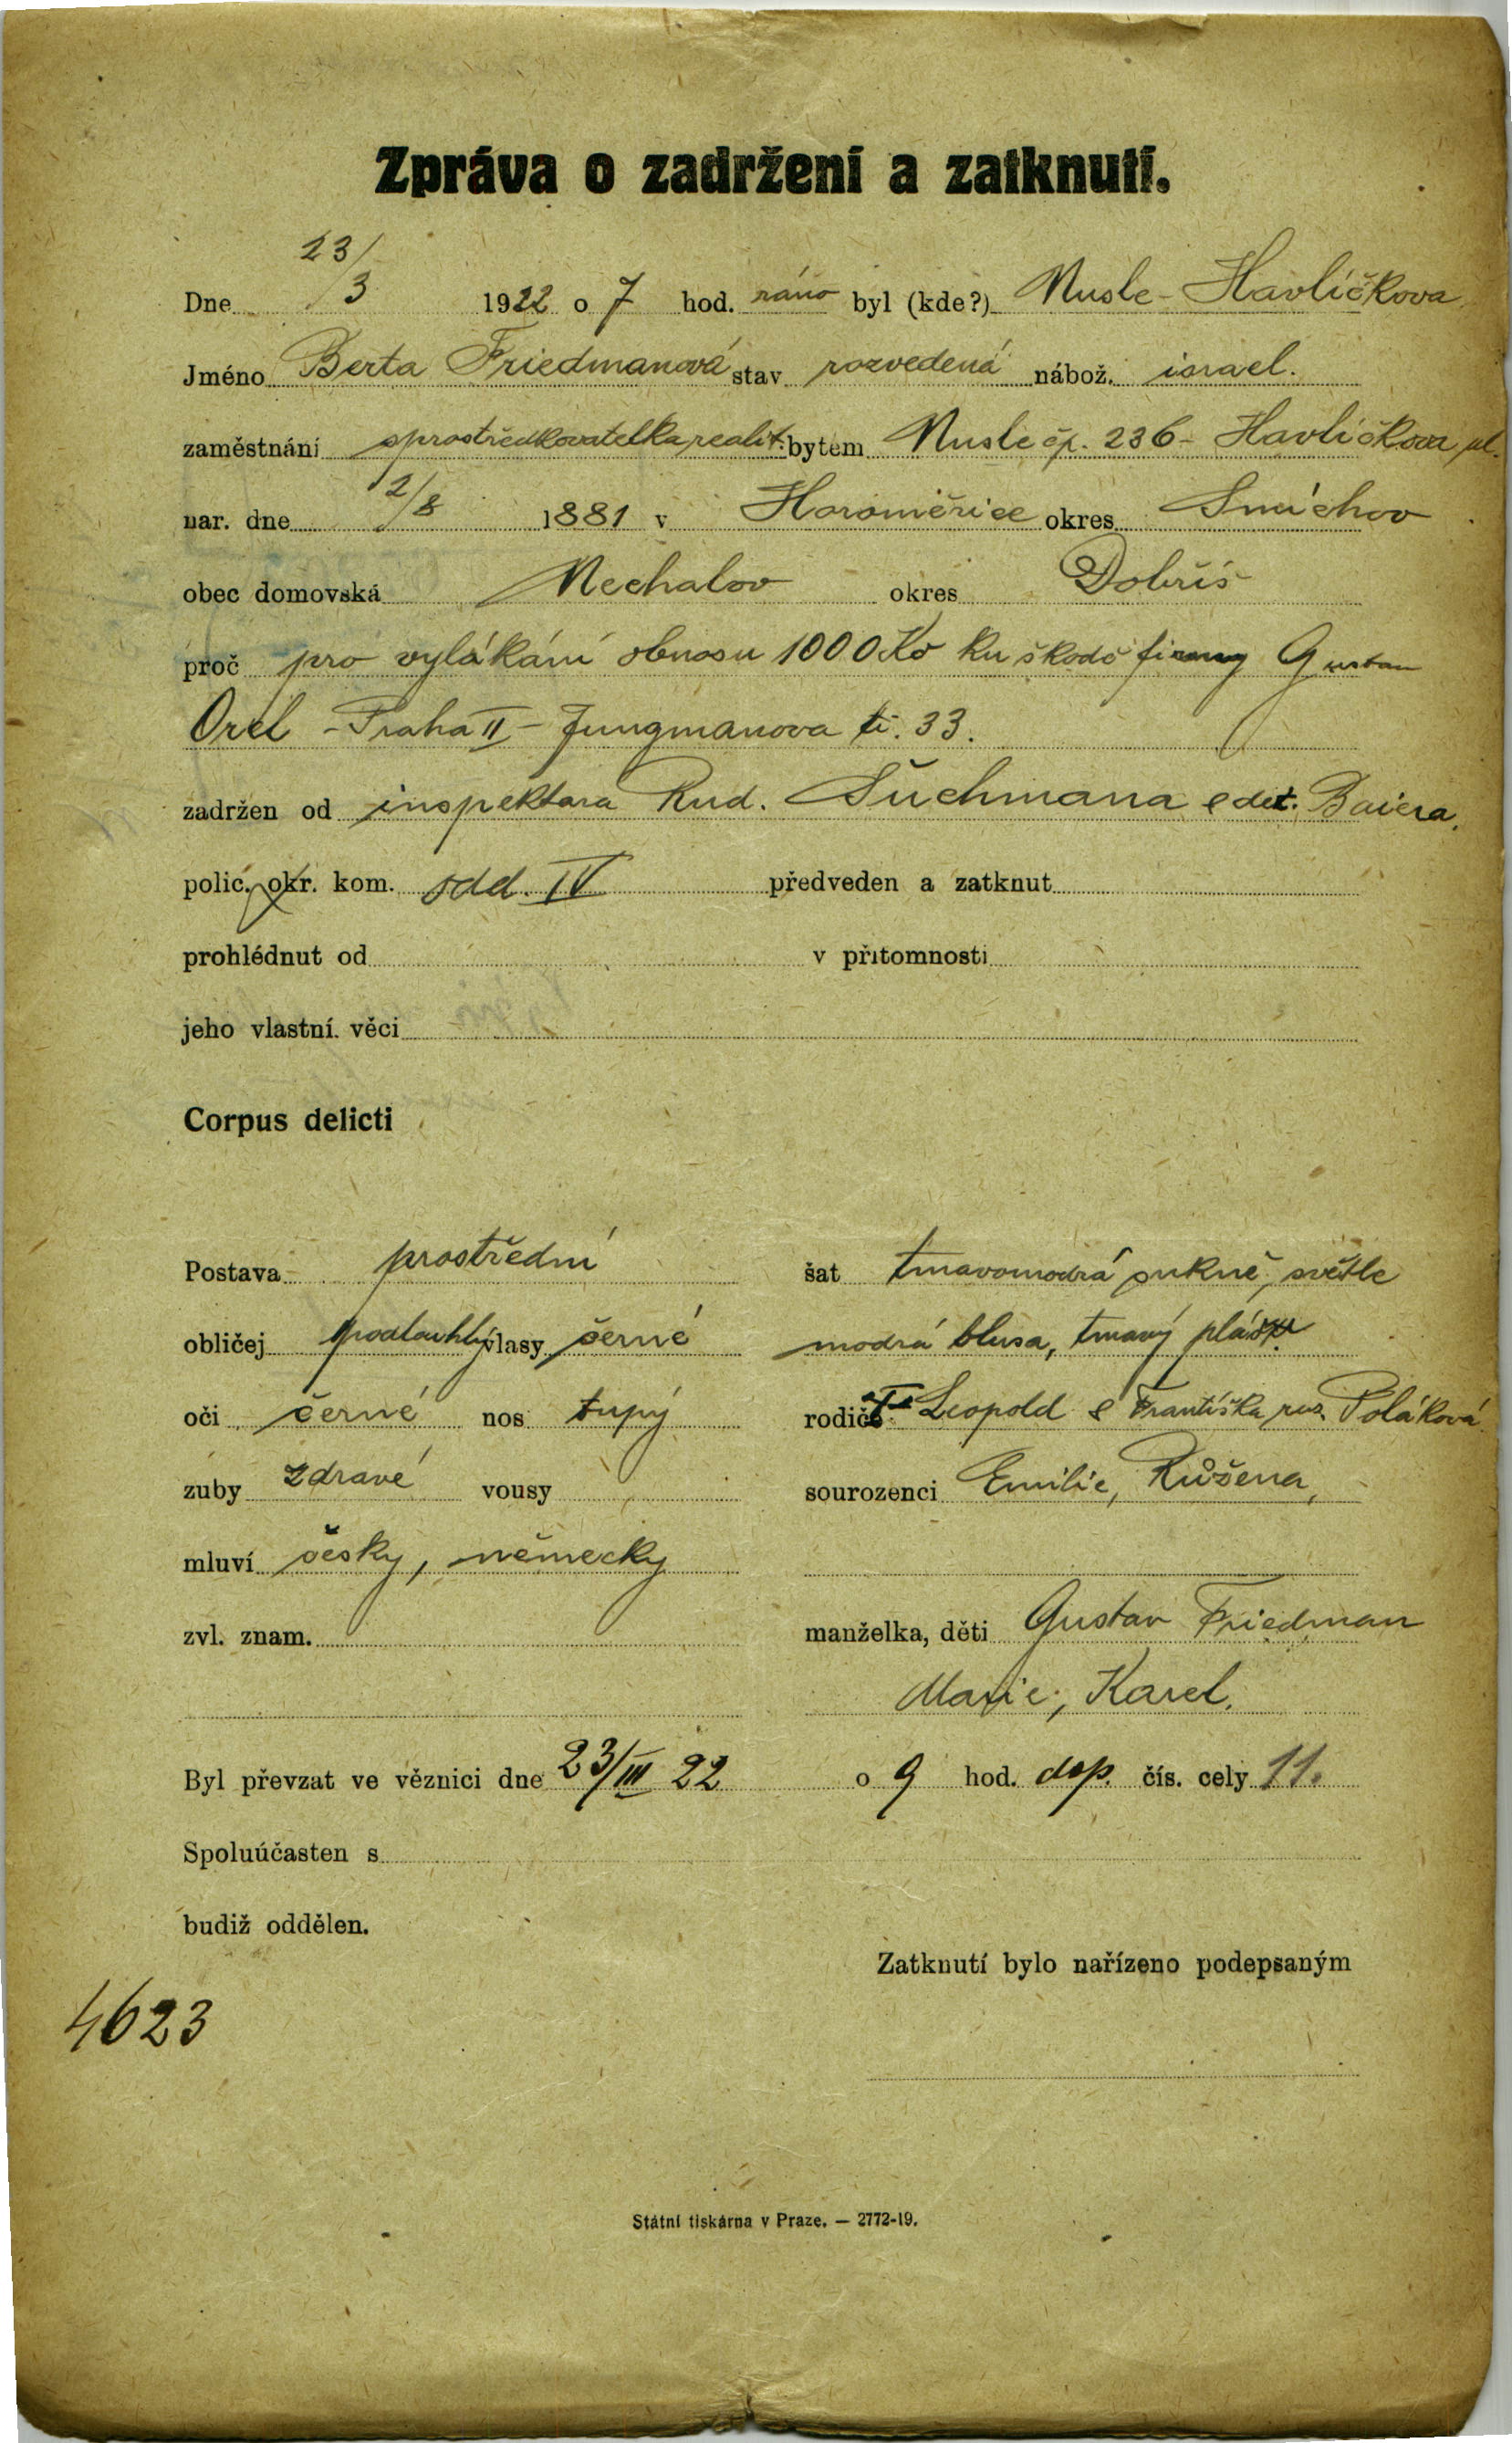 Zpráva o zadržení a zatknutí.
Dne 23/3 1922 o 7 hod. ráno byl (kde?) Nusle - Havlíčkova
Jméno Berta Friedmanová stav rozvedená nábož. israel.
zaměstnání sprostředkovatelka realit. bytem Nusle čp. 236 - Havlíčkova ul.
nar. dne 2/8 1881 v Horoměřice okres Smíchov
obec domovská Nechalov okres Dobříš
proč pro vylákání obnosu 1000 Kč ku škodě firmy Gustav
Orel - Praha II - Jungmanova tř. 33.
zadržen od inspektora Rud. Šuchmana e det. Baiera.
polic. okr. kom. odd. IV předveden a zatknut
prohlédnut od v přítomnosti
jeho vlastní. věci
Corpus delicti
Postava prostřední šat tmavomodrá sukně, světle
obličej podlouhlý vlasy černé modrá blusa, tmavý plášť.
oči černé nos tupý rodiče Leopold e Františka roz. Poláková
zuby zdravé vousy sourozenci Emilie, Růžena,
mluví česky, německy
zvl. znam. manželka, děti Gustav Friedman
Marie, Karel.
Byl převzat ve věznici dne 23/III 22 o 9 hod. dop. čís. cely 11.
Spoluúčasten s
budiž oddělen.
Zatknutí bylo nařízeno podepsaným
4623
Státní tiskárna v Praze. — 2772-19.